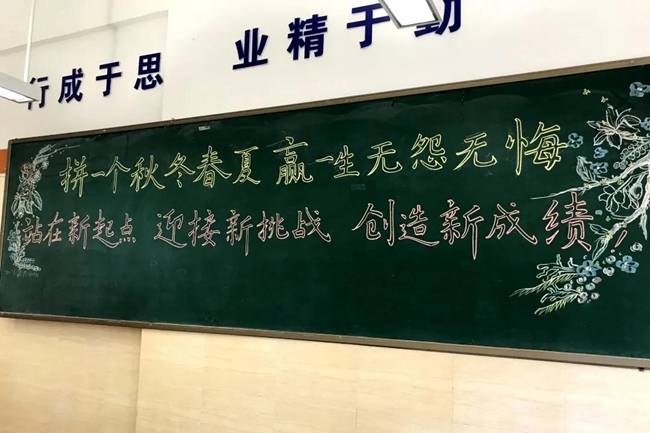 行成于思 业精于勤
拼一个秋冬春夏 赢一生无怨无悔
站在新起点 迎接新挑战 创造新成绩！